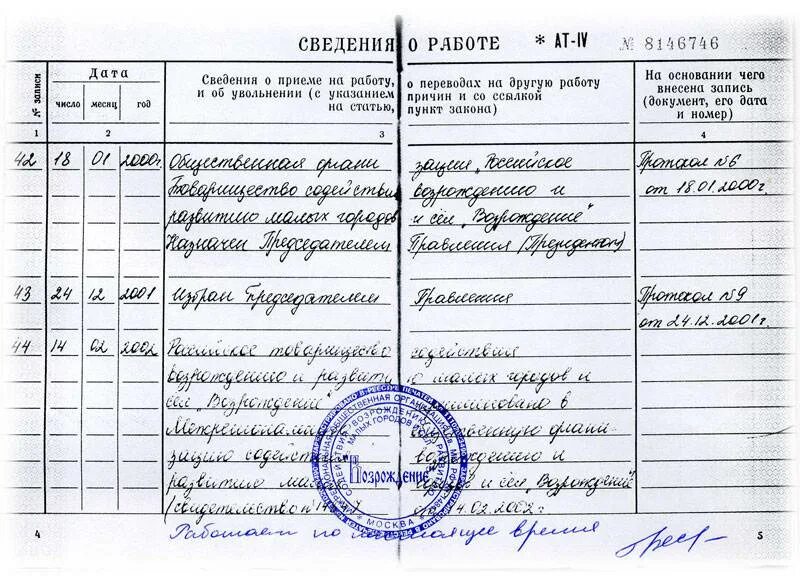 СВЕДЕНИЯ О РАБОТЕ * АТ-IV № 8146746
№ записи
Дата
число месяц год
Сведения о приеме на работу, о переводах на другую работу
и об увольнении (с указанием причин и со ссылкой
на статью, пункт закона)
На основании чего
внесена запись
(документ, его дата
и номер)
1 2 3 4
42 18 01 2000г. Общественная органи зация „Российское Протокол №6
Товарищество содействия возрождению и от 18.01.2000г.
развитию малых городов и сёл „Возрождение"
Назначен Председателем Правления (Президентом)
43 24 12 2001 Избран Председателем Правления Протокол №9
от 24.12.2001г.
44 14 02 2002 Российское товарищество содействия
возрождению и развити ю малых городов и
сёл „Возрождение"
в
Межрегиональ органи-
зацию содейств возрождению и
развитию мал и сёл „Возрождение"
(свидетельство 14.02.2002г.
Возрождение
МОСКВА
Работает по настоящее время
4 5